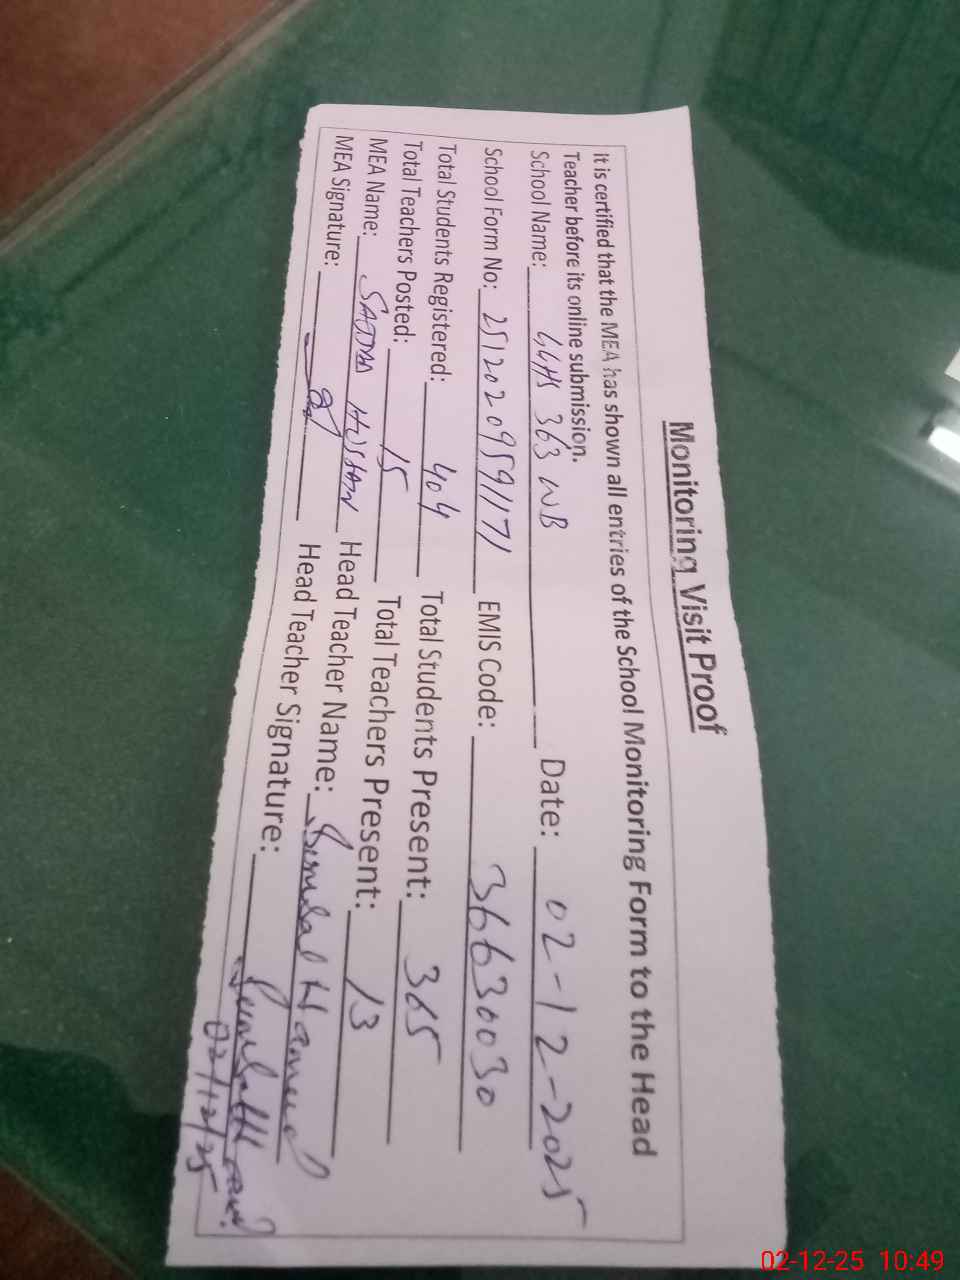 Monitoring Visit Proof
It is certified that the MEA has shown all entries of the School Monitoring Form to the Head
Teacher before its online submission.
School Name: GGHS 363 WB Date: 02-12-2025
School Form No: 2512020959171 EMIS Code: 36630030
Total Students Registered: 404 Total Students Present: 365
Total Teachers Posted: 15 Total Teachers Present: 13
MEA Name: SAJJAD HUSSAIN Head Teacher Name: Hameed
MEA Signature: Head Teacher Signature:
02/12/25
02-12-25 10:49